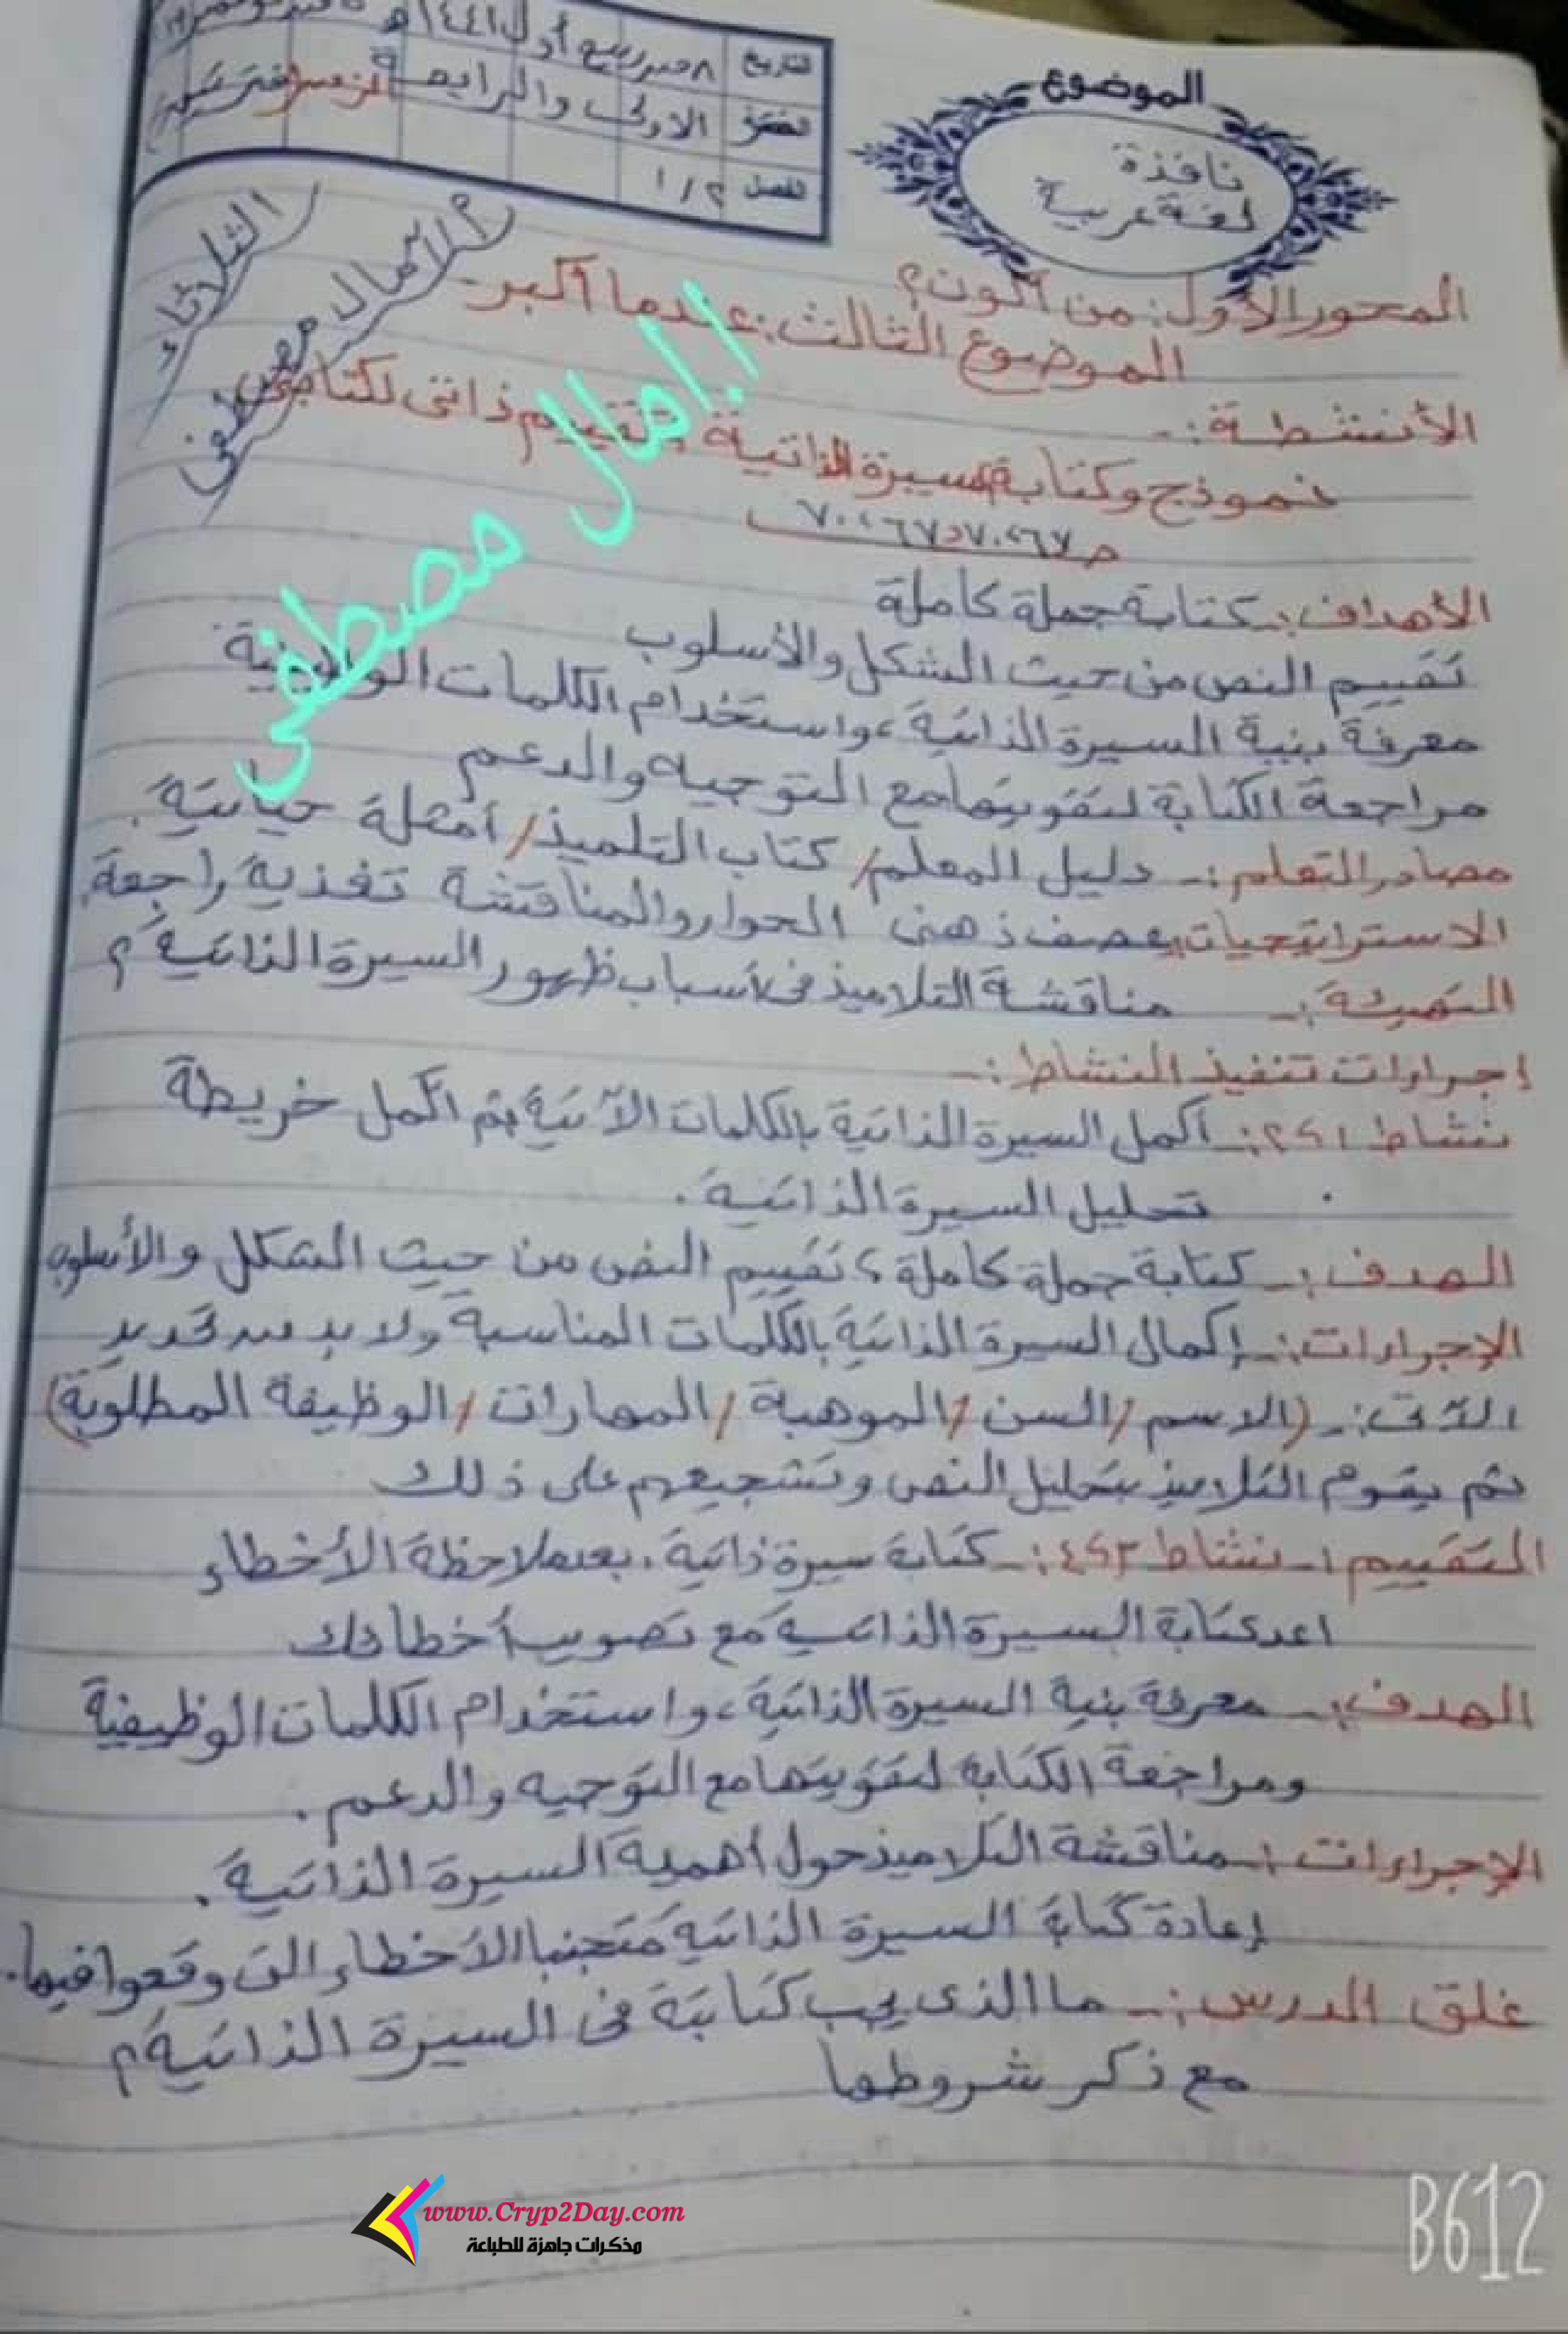 الموضوع
نافذة
لغة عربية
التاريخ ٨ من ربيع أول ١٤٤١هـ
الاولى والرابعة
الفصل ١/٢
الثلاثاء
أ/آمال مصطفى
أ.امال مصطفى
المحور الأول: من أكون؟
الموضوع الثالث: عندما أكبر
الأنشطة:-
نموذج وكتابة السيرة الذاتية وتقييم ذاتى لكتابتى
الأهداف:- كتابة جملة كاملة
تقييم النص من حيث الشكل والأسلوب
معرفة بنية السيرة الذاتية، واستخدام الكلمات الوظيفية
مراجعة الكتابة لتقويتها مع التوجيه والدعم
مصادر التعلم:- دليل المعلم/ كتاب التلميذ/ أمثلة حياتية.
الاستراتيجيات:- عصف ذهنى الحوار والمناقشة تغذية راجعة.
التهيئة:- مناقشة التلاميذ فى أسباب ظهور السيرة الذاتية؟
إجراءات تنفيذ النشاط:-
نشاط ١،٢:- أكمل السيرة الذاتية بالكلمات الآتية ثم اكمل خريطة
تحليل السيرة الذاتية.
الهدف:- كتابة جملة كاملة، تقييم النص من حيث الشكل والأسلوب
الإجراءات:- إكمال السيرة الذاتية بالكلمات المناسبة ولابد من تحديد
الآتى:- (الاسم/ السن/ الموهبة/ المهارات/ الوظيفة المطلوبة)
ثم يقوم التلاميذ بتحليل النص وتشجيعهم على ذلك
التقييم:- نشاط ٣،٤:- كتابة سيرة ذاتية. بعد ملاحظة الأخطاء
اعد كتابة السيرة الذاتية مع تصويب أخطائك
الهدف:- معرفة بنية السيرة الذاتية، واستخدام الكلمات الوظيفية
ومراجعة الكتابة لتقويتها مع التوجيه والدعم.
الإجراءات:- مناقشة التلاميذ حول أهمية السيرة الذاتية.
إعادة كتابة السيرة الذاتية متجنبا الأخطاء التى وقعوا فيها.
غلق الدرس:- ما الذى يجب كتابتة فى السيرة الذاتية؟
مع ذكر شروطها
www.Cryp2Day.com
مذكرات جاهزة للطباعة
B612